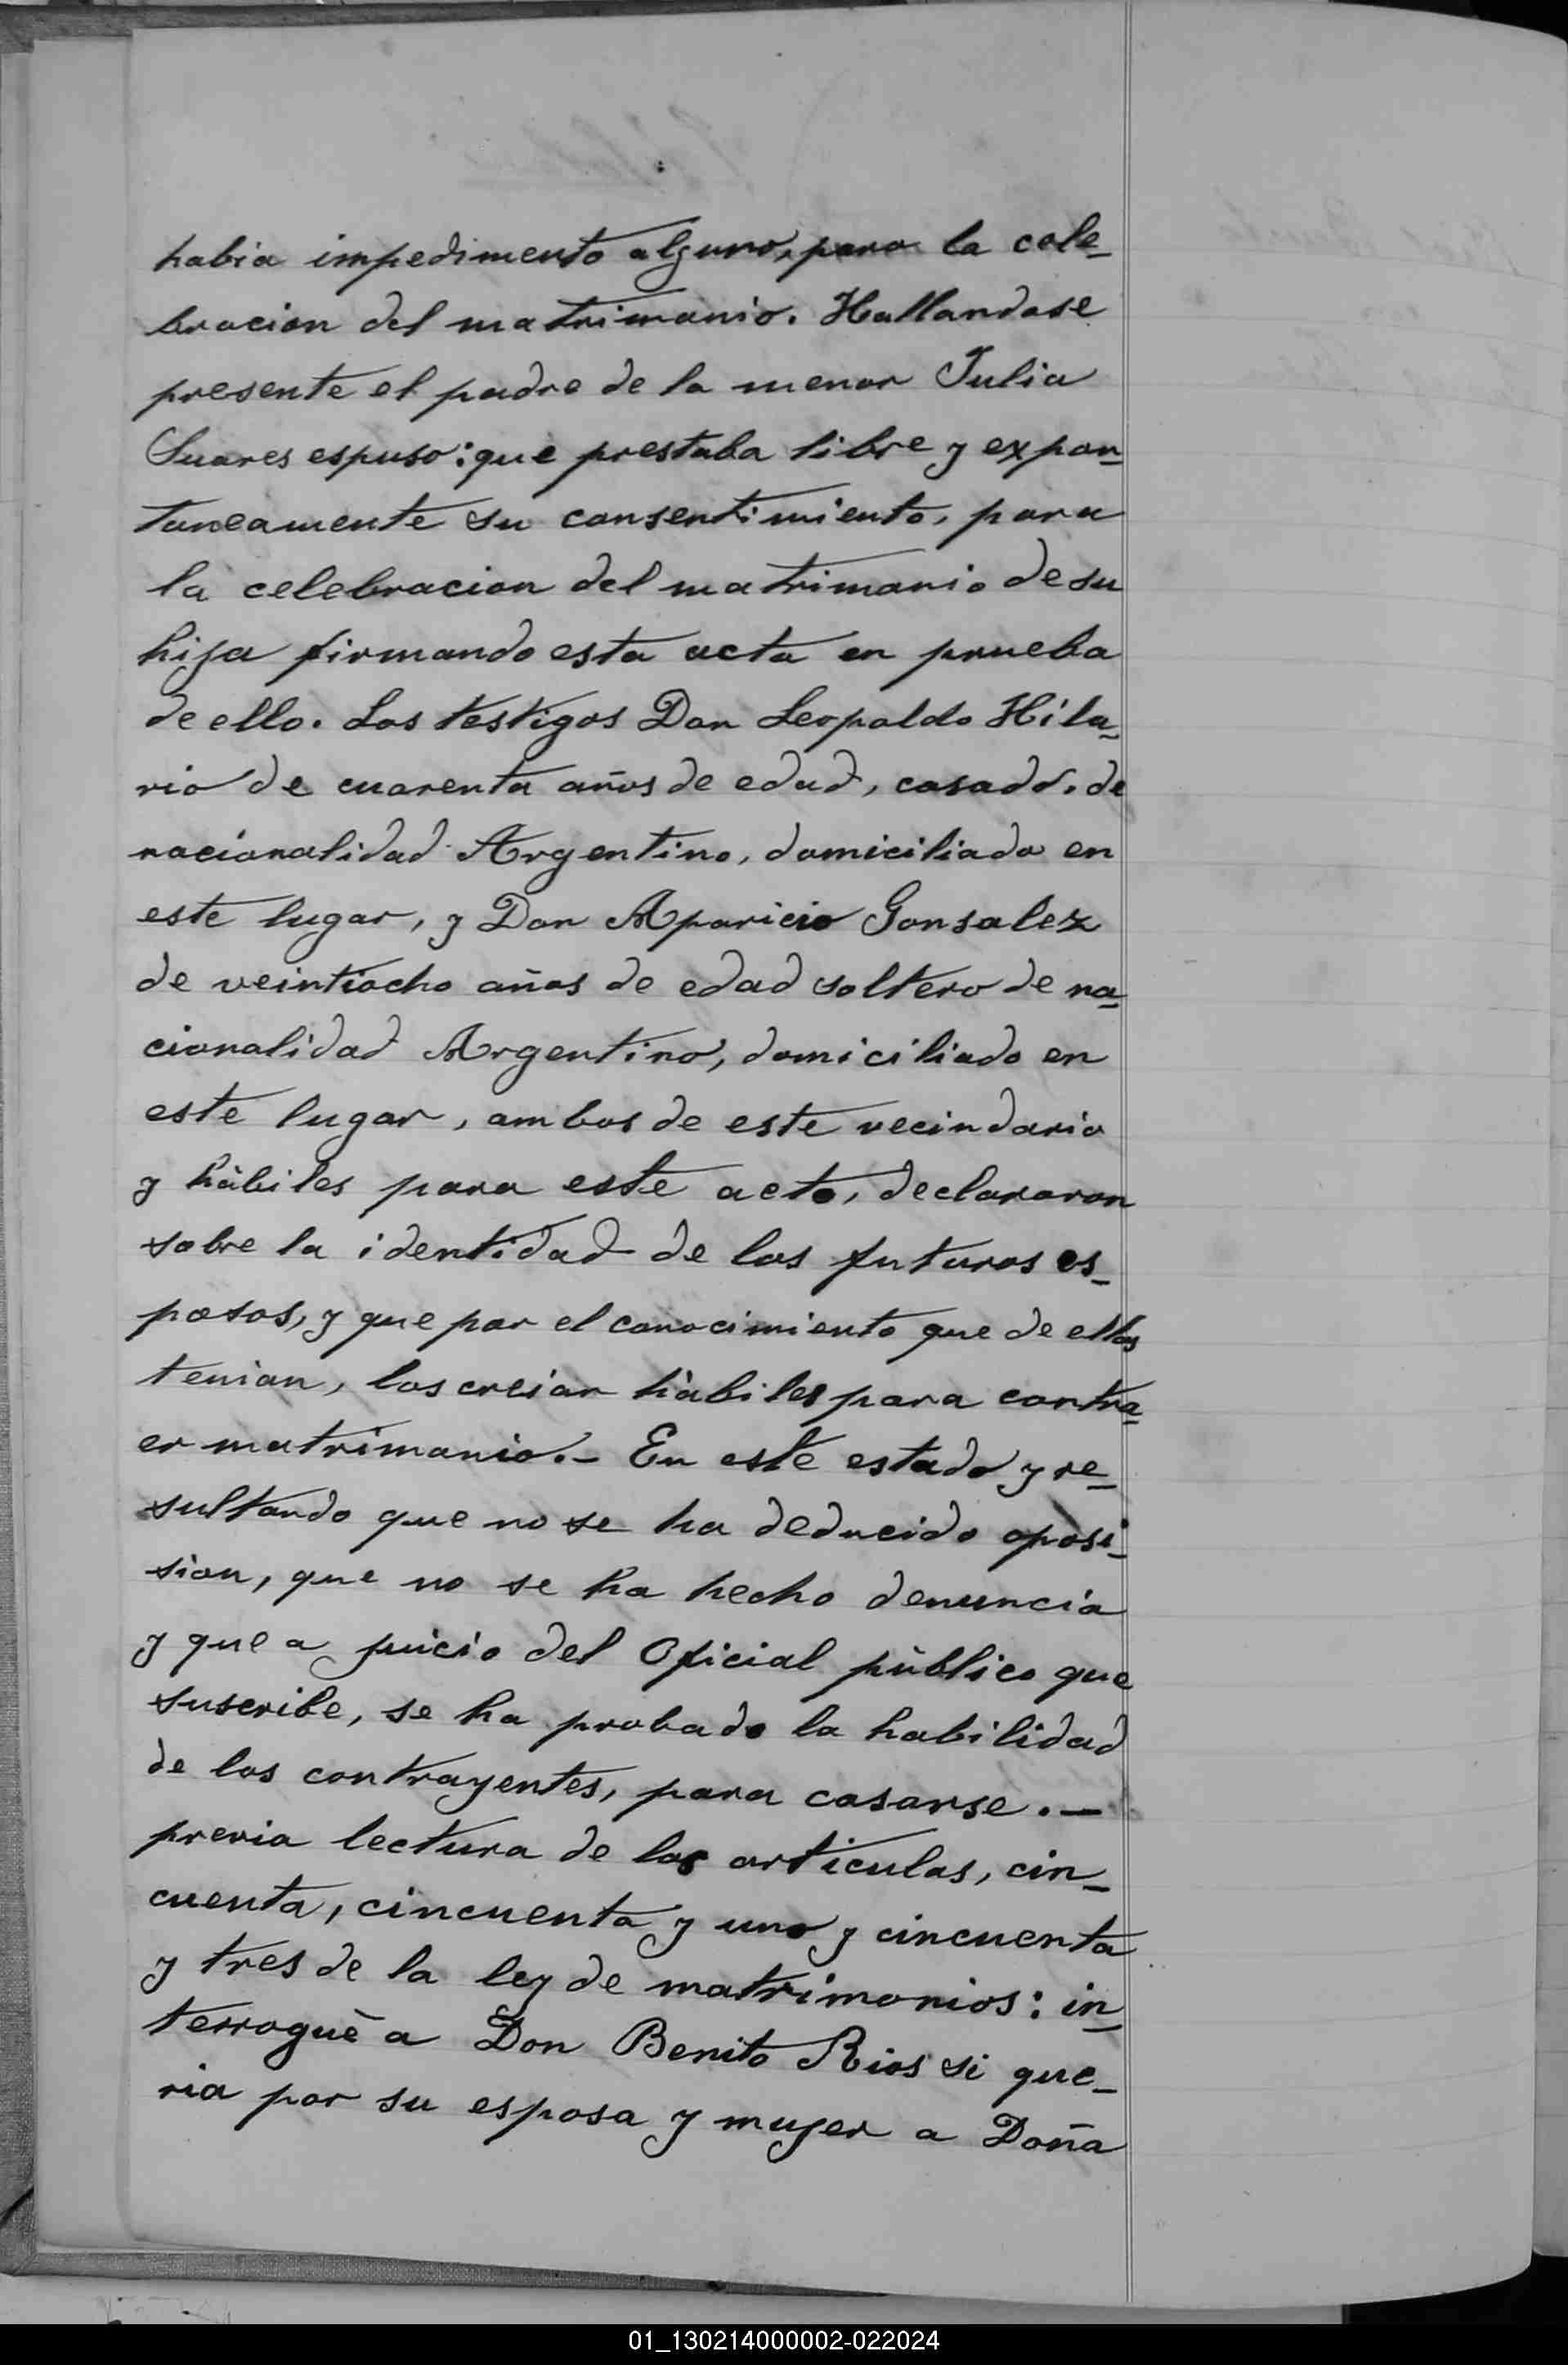 habia impedimento alguno, para la cele-
bracion del matrimonio. Hallandose
presente el padre de la menor Julia
Suares espuso: que prestaba libre y expon-
taneamente su consentimiento, para
la celebracion del matrimonio de su
hija firmando esta acta en prueba
de ello. Los testigos Don Leopoldo Hila-
rio de cuarenta años de edad, casado, de
nacionalidad Argentino, domiciliado en
este lugar, y Don Aparicio Gonsalez
de veintiocho años de edad soltero de na-
cionalidad Argentino, domiciliado en
este lugar, ambos de este vecindario
y hàbiles para este acto, declararon
sobre la identidad de los futuros es-
posos, y que por el conocimiento que de ellos
tenian, los creian hàbiles para contra-
er matrimonio.- En este estado y re-
sultando que no se ha deducido oposi-
sion, que no se ha hecho denuncia
y que a juicio del Oficial pùblico que
suscribe, se ha probado la habilidad
de los contrayentes, para casarse.-
previa lectura de los articulos, cin-
cuenta, cincuenta y uno y cincuenta
y tres de la ley de matrimonios: in-
terroguè a Don Benito Rios si que-
ria por su esposa y mujer a Doña
01_130214000002-022024